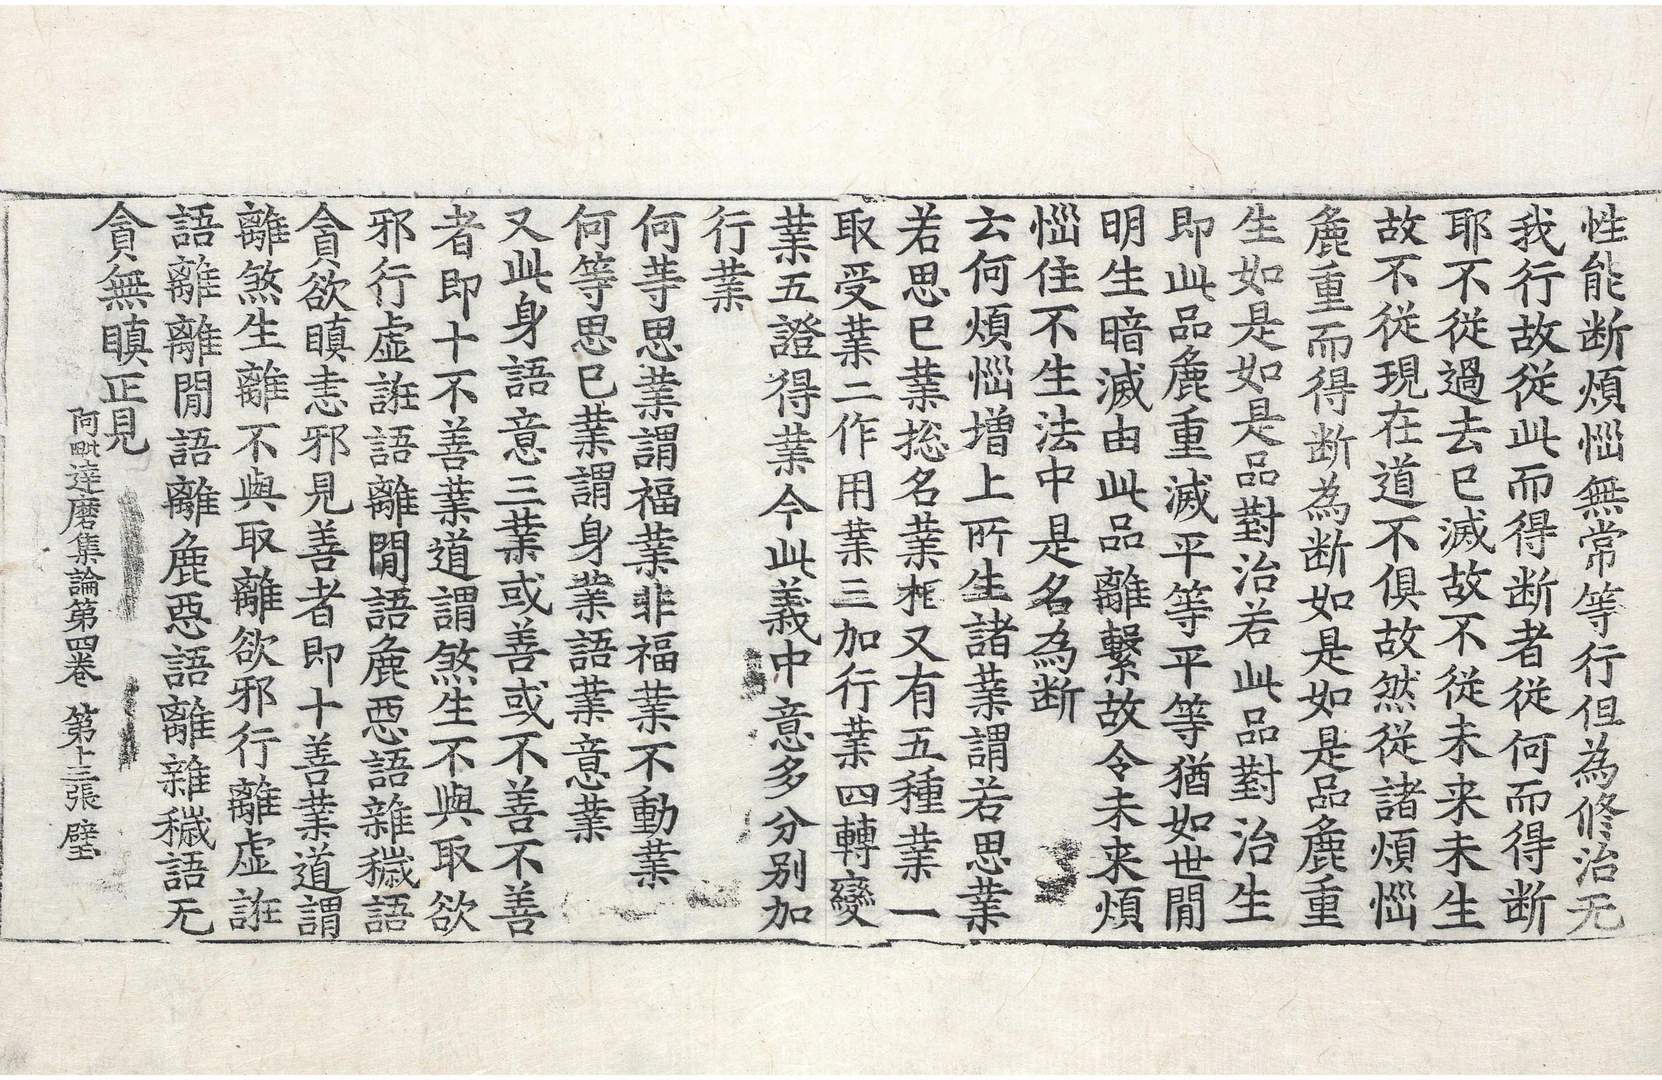 性能断煩惱無常等行但為修治无
我行故従此而得断者従何而得断
耶不従過去已滅故不従未来未生
故不従現在道不俱故然従諸煩惱
麁重而得断為断如是如是品麁重
生如是如是品對治若此品對治生
即此品麁重滅平等平等猶如世閒
明生暗滅由此品離繫故令未来煩
惱住不生法中是名為断
云何煩惱增上所生諸業謂若思業
若思已業揔名業相又有五種業一
取受業二作用業三加行業四轉變
業五證得業今此義中意多分别加
行業
何等思業謂福業非福業不動業
何等思已業謂身業語業意業
又此身語意三業或善或不善不善
者即十不善業道謂煞生不與取欲
邪行虛誑語離閒語麁惡語雜穢語
貪欲瞋恚邪見善者即十善業道謂
離煞生離不與取離欲邪行離虛誑
語離離閒語離麁惡語離雜穢語无
貪無瞋正見
阿毗達磨集論第四卷 第十三張 璧